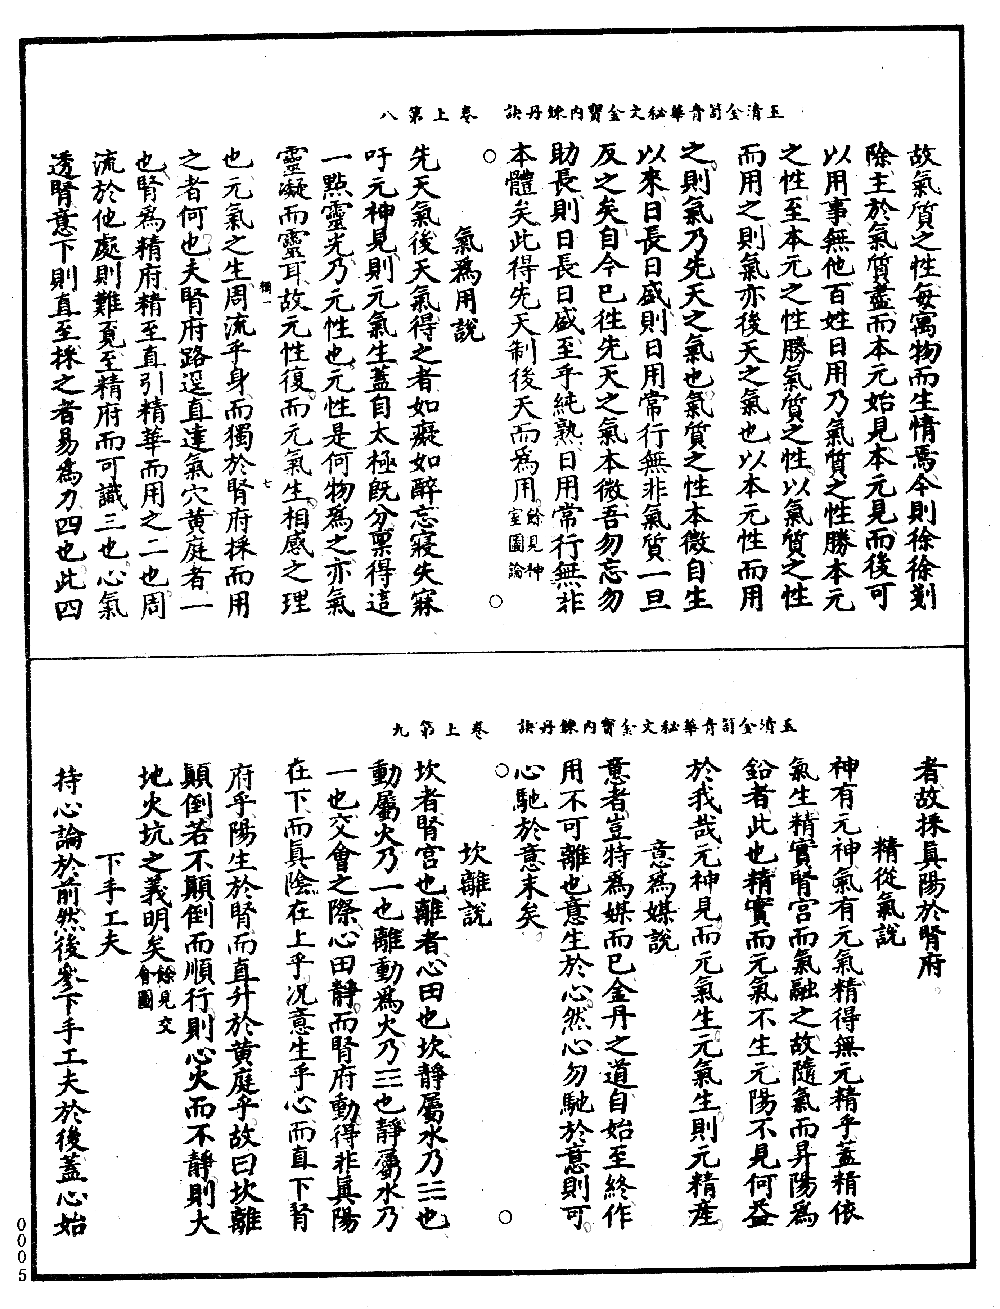 玉清金笥青華秘文金寶內鍊丹訣　卷上第八
故氣質之性每寓物而生情焉今則徐徐剗
除主於氣質盡而本元始見本元見而後可
以用事無他百姓日用乃氣質之性勝本元
之性至本元之性勝氣質之性以氣質之性
而用之則氣亦後天之氣也以本元性而用
之則氣乃先天之氣也氣質之性本微自生
以來日長日盛則日用常行無非氣質一旦
反之矣自今已徃先天之氣本微吾勿忘勿
助長則日長日盛至乎純熟日用常行無非
本體矣此得先天制後天而爲用餘見神室圖論
○
氣爲用說
○
先天氣後天氣得之者如癡如醉忘寢失寐
吁元神見則元氣生蓋自太極旣分稟得這
一點靈光乃元性也元性是何物爲之亦氣
靈凝而靈耳故元性復而元氣生相感之理
欄一　七
也元氣之生周流乎身而獨於腎府採而用
之者何也夫腎府路逕直達氣穴黃庭者一
也腎爲精府精至直引精華而用之二也周
流於他處則難覓至精府而可識三也心氣
透腎意下則直至採之者易爲力四也此四
玉清金笥青華秘文金寶內鍊丹訣　卷上第九
者故採眞陽於腎府
精從氣說
神有元神氣有元氣精得無元精乎蓋精依
氣生精實腎宮而氣融之故隨氣而昇陽爲
鉛者此也精實而元氣不生元陽不見何益
於我哉元神見而元氣生元氣生則元精產
意爲媒說
意者豈特爲媒而已金丹之道自始至終作
用不可離也意生於心然心勿馳於意則可
心馳於意末矣
○
坎離說
○
坎者腎宮也離者心田也坎靜屬水乃☵也
動屬火乃一也離動爲火乃☲也靜屬水乃
一也交會之際心田靜而腎府動得非眞陽
在下而眞陰在上乎况意生乎心而直下腎
府乎陽生於腎而直升於黃庭乎故曰坎離
顚倒若不顚倒而順行則心火而不靜則大
地火坑之義明矣餘見交會圖
下手工夫
持心論於前然後參下手工夫於後蓋心始
0005